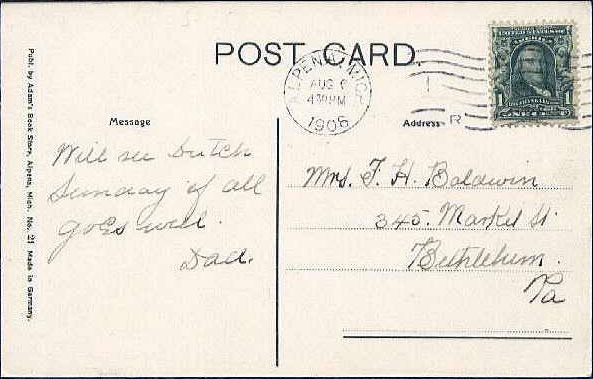 POST CARD.
ALPENA, MICH.
AUG 6
4 30 PM
1908
R
UNITED STATES OF AMERICA
1 1
Publ. by Adam's Book Store, Alpena, Mich. No. 21 Made in Germany.
Message
Will see Dutch
Sunday if all
goes well.
Dad.
Address
Mrs. F. H. Baldwin
345. Market St
Bethlehem.
Pa